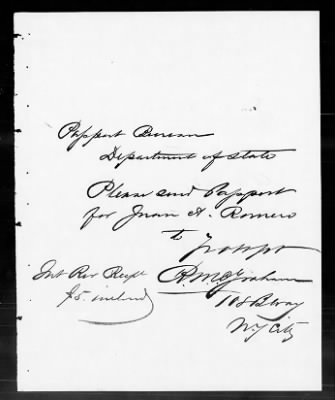 Passport Bureau
Department of State
Please send Passport
for Juan A. Romero
to
Int Rev Recpt
$5. inclosed
108 Bway
N.Y City